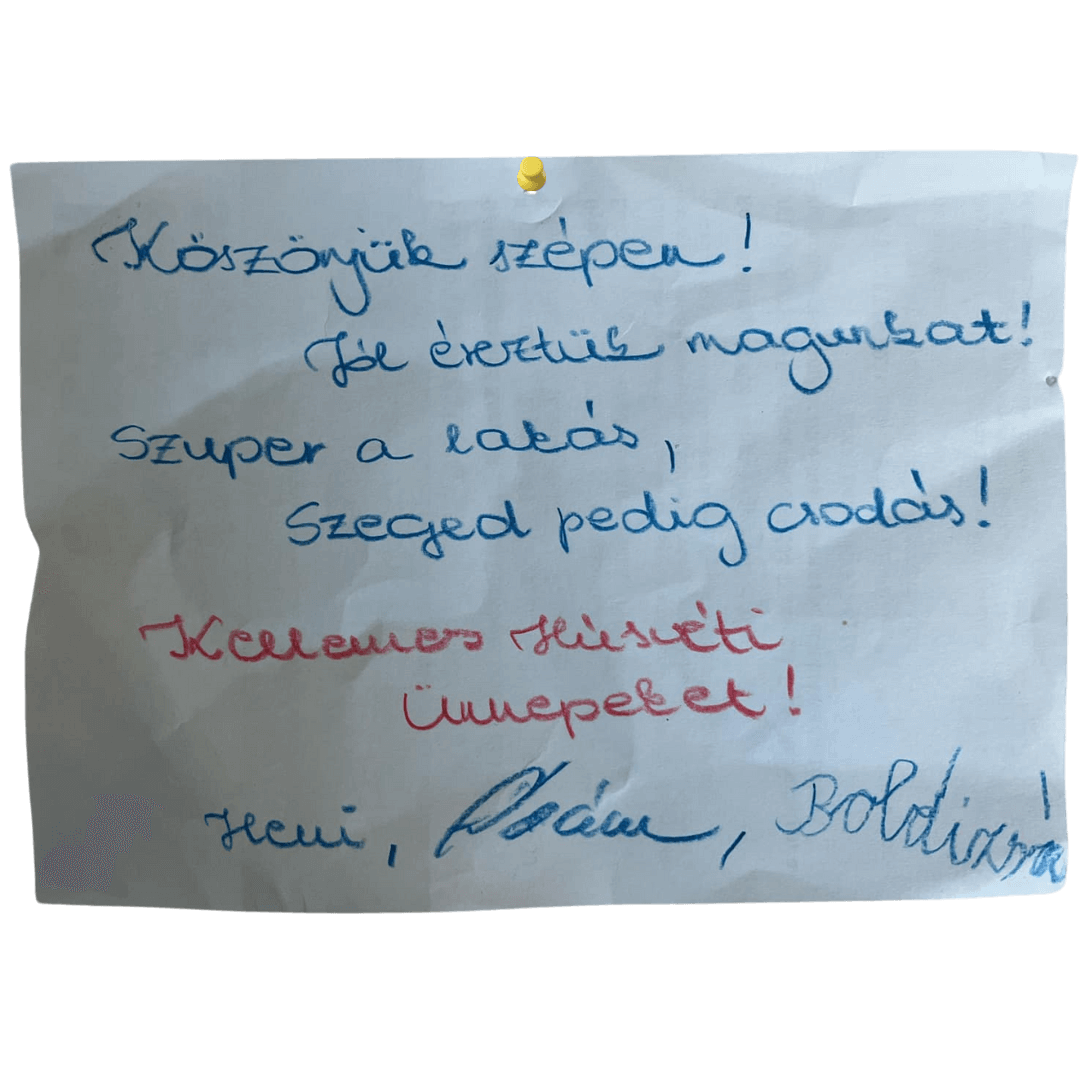 Köszönjük szépen!
Jól éreztük magunkat!
Szuper a lakás,
Szeged pedig csodás!
Kellemes Húsvéti
Ünnepeket!
Heni, Ádám, Boldizsár